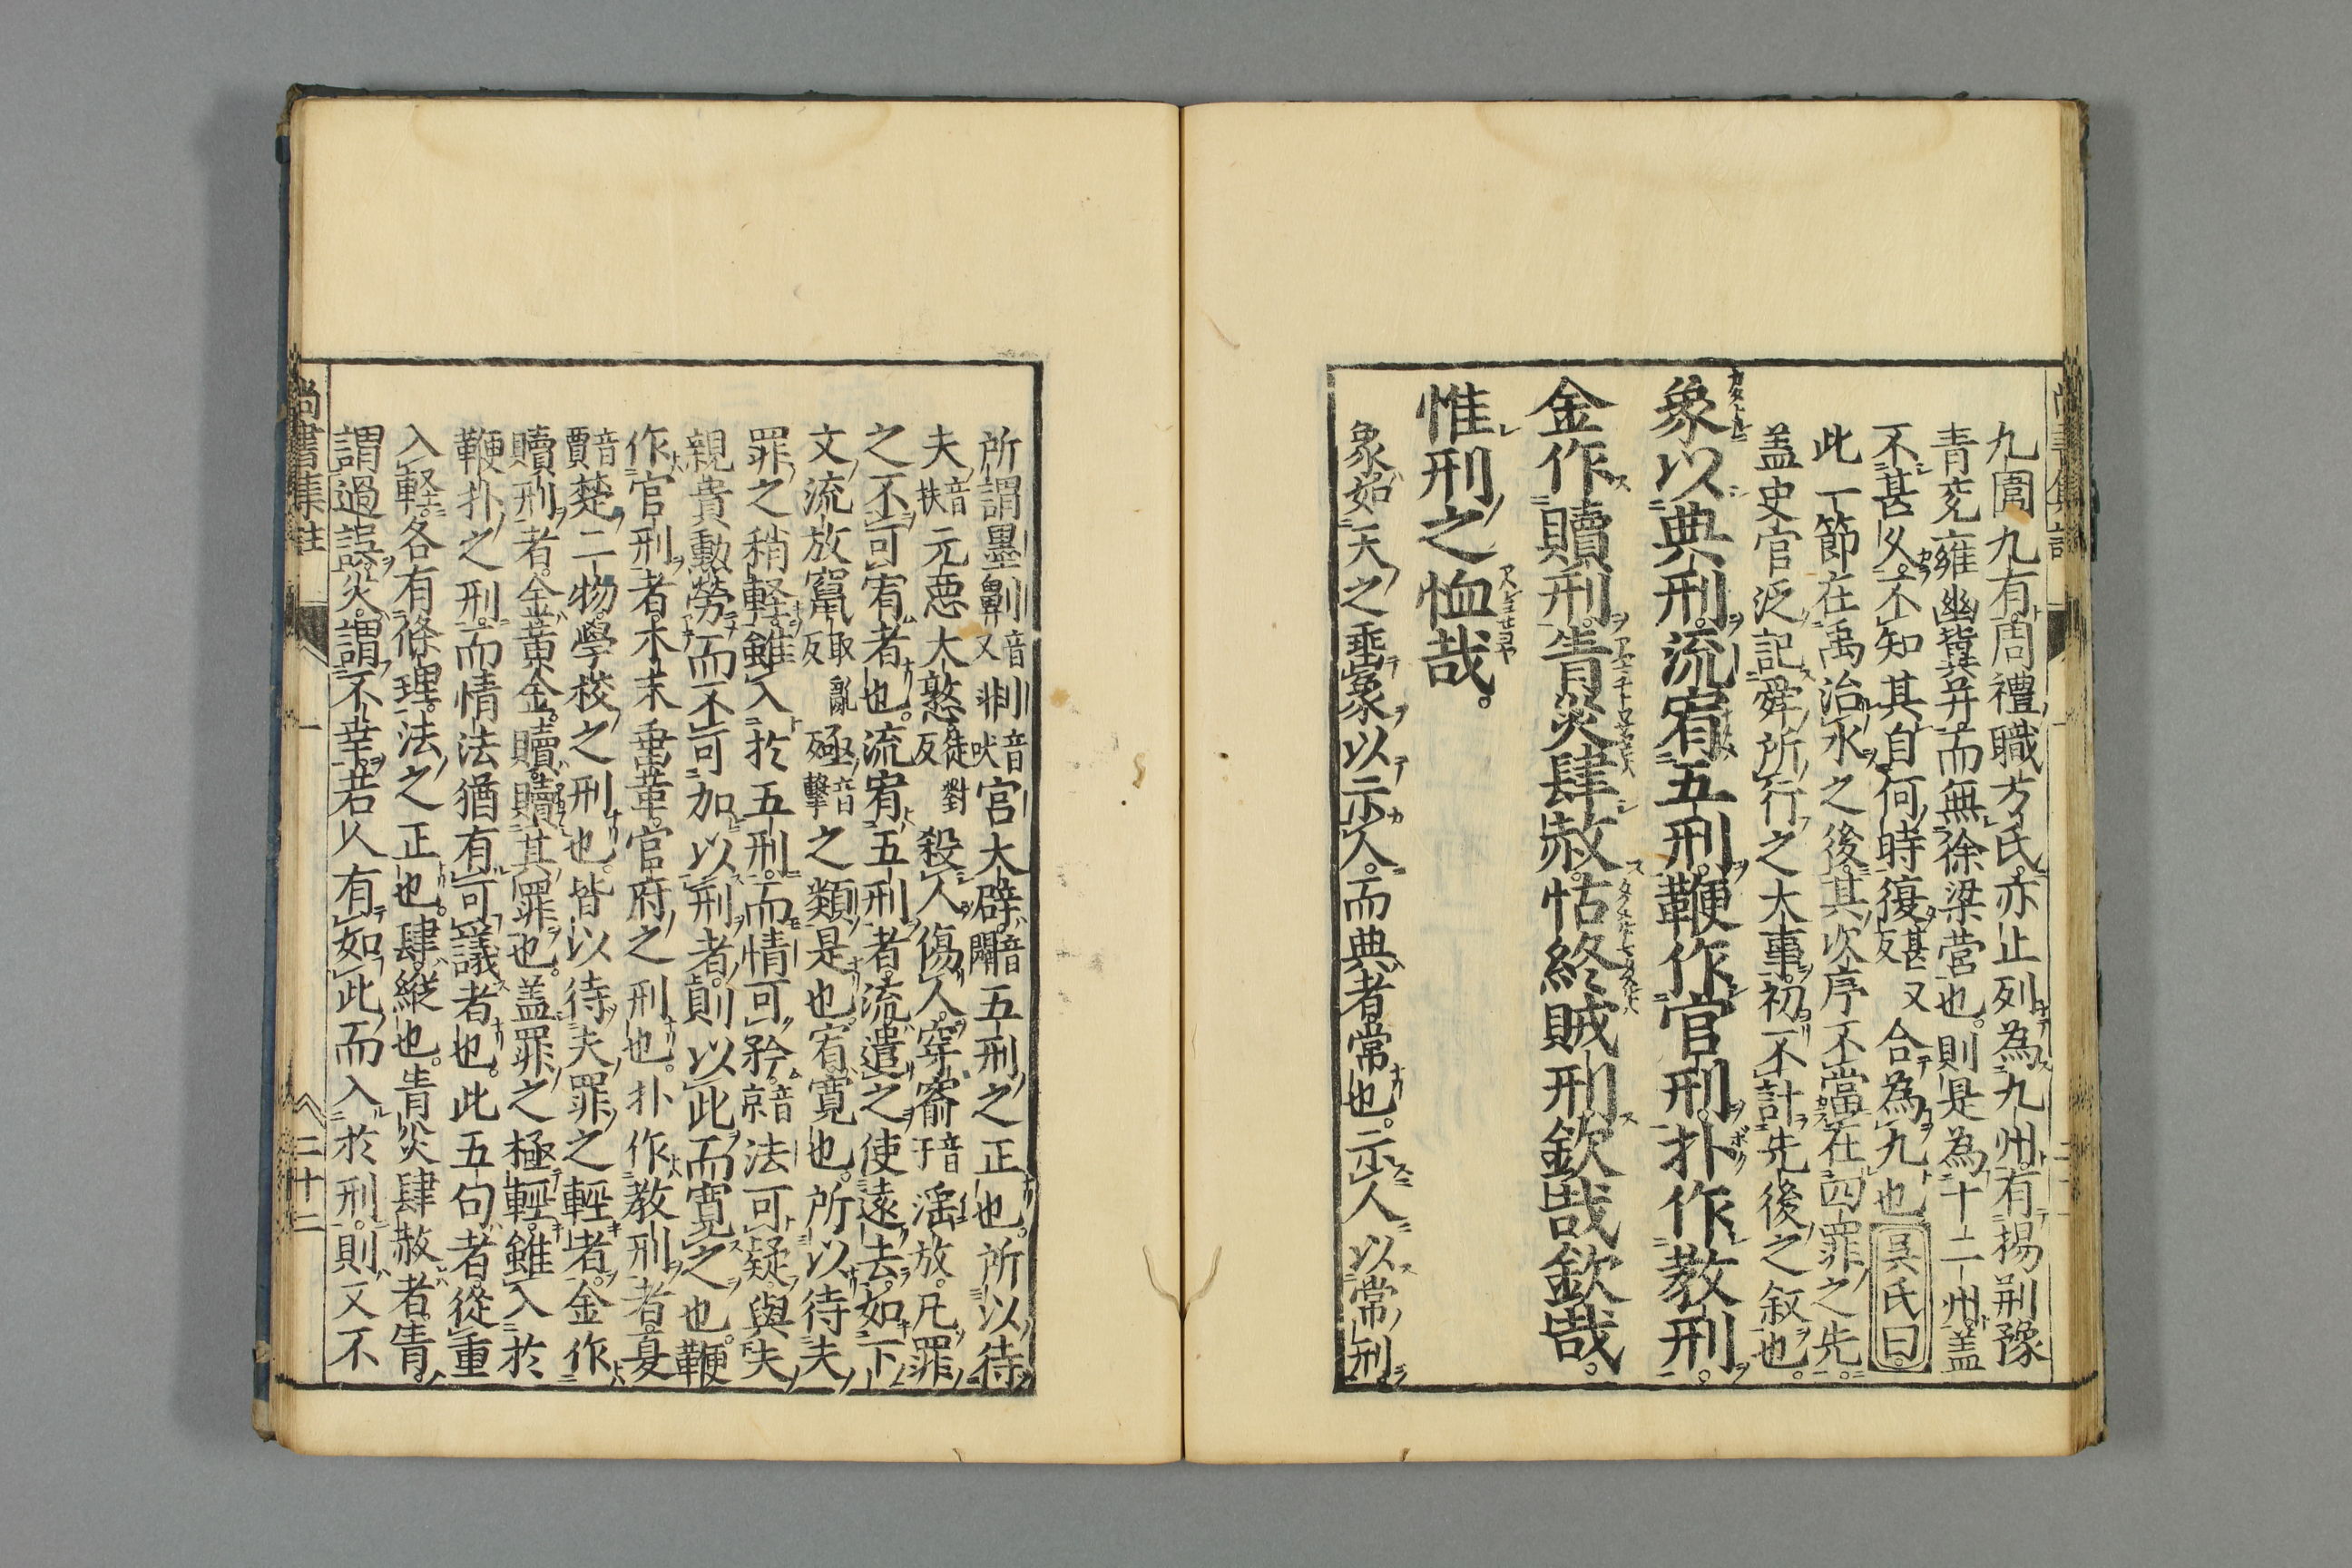 九圍九有周禮職方氏亦止列為九州有楊荊豫
青兗雍幽冀并而無徐梁營也則是為十二州盖
不甚久不知其自何時復扶又反合為九也吳氏曰
此一節在禹治水之後其次序不當在四罪之先
盖史官泛記舜所行之大事初不計先後之叙也
象以典刑流宥五刑鞭作官刑扑作教刑
金作贖刑眚災肆赦怙終賊刑欽哉欽哉
惟刑之恤哉
象如天之垂象以示人而典者常也示人以常刑
所謂墨劓音又鼻剕音吠宮大辟音闢五刑之正也所以待
夫音扶元悪大憝徒對反殺人傷人穿窬音于滛放凡罪
之不可宥者也流宥五刑者流遣之使遠去如下
文流放竄取亂反殛音擊之類是也宥寛也所以待夫
罪之稍軽雖入於五刑而情可矜音京法可疑與夫
親貴勳勞而不可加以刑者則以此而寛之也鞭
作官刑者木末垂革官府之刑也扑作教刑者夏
音賈楚二物學校之刑也皆以待夫罪之輕者金作
贖刑者金黄金贖贖其罪也盖罪之極輕雖入於
鞭扑之刑而情法猶有可議者也此五句者從重
入軽各有條理法之正也肆縦也眚災肆赦者眚
謂過誤災謂不幸若人有如此而入於刑則又不
尚書集註 一 二十二